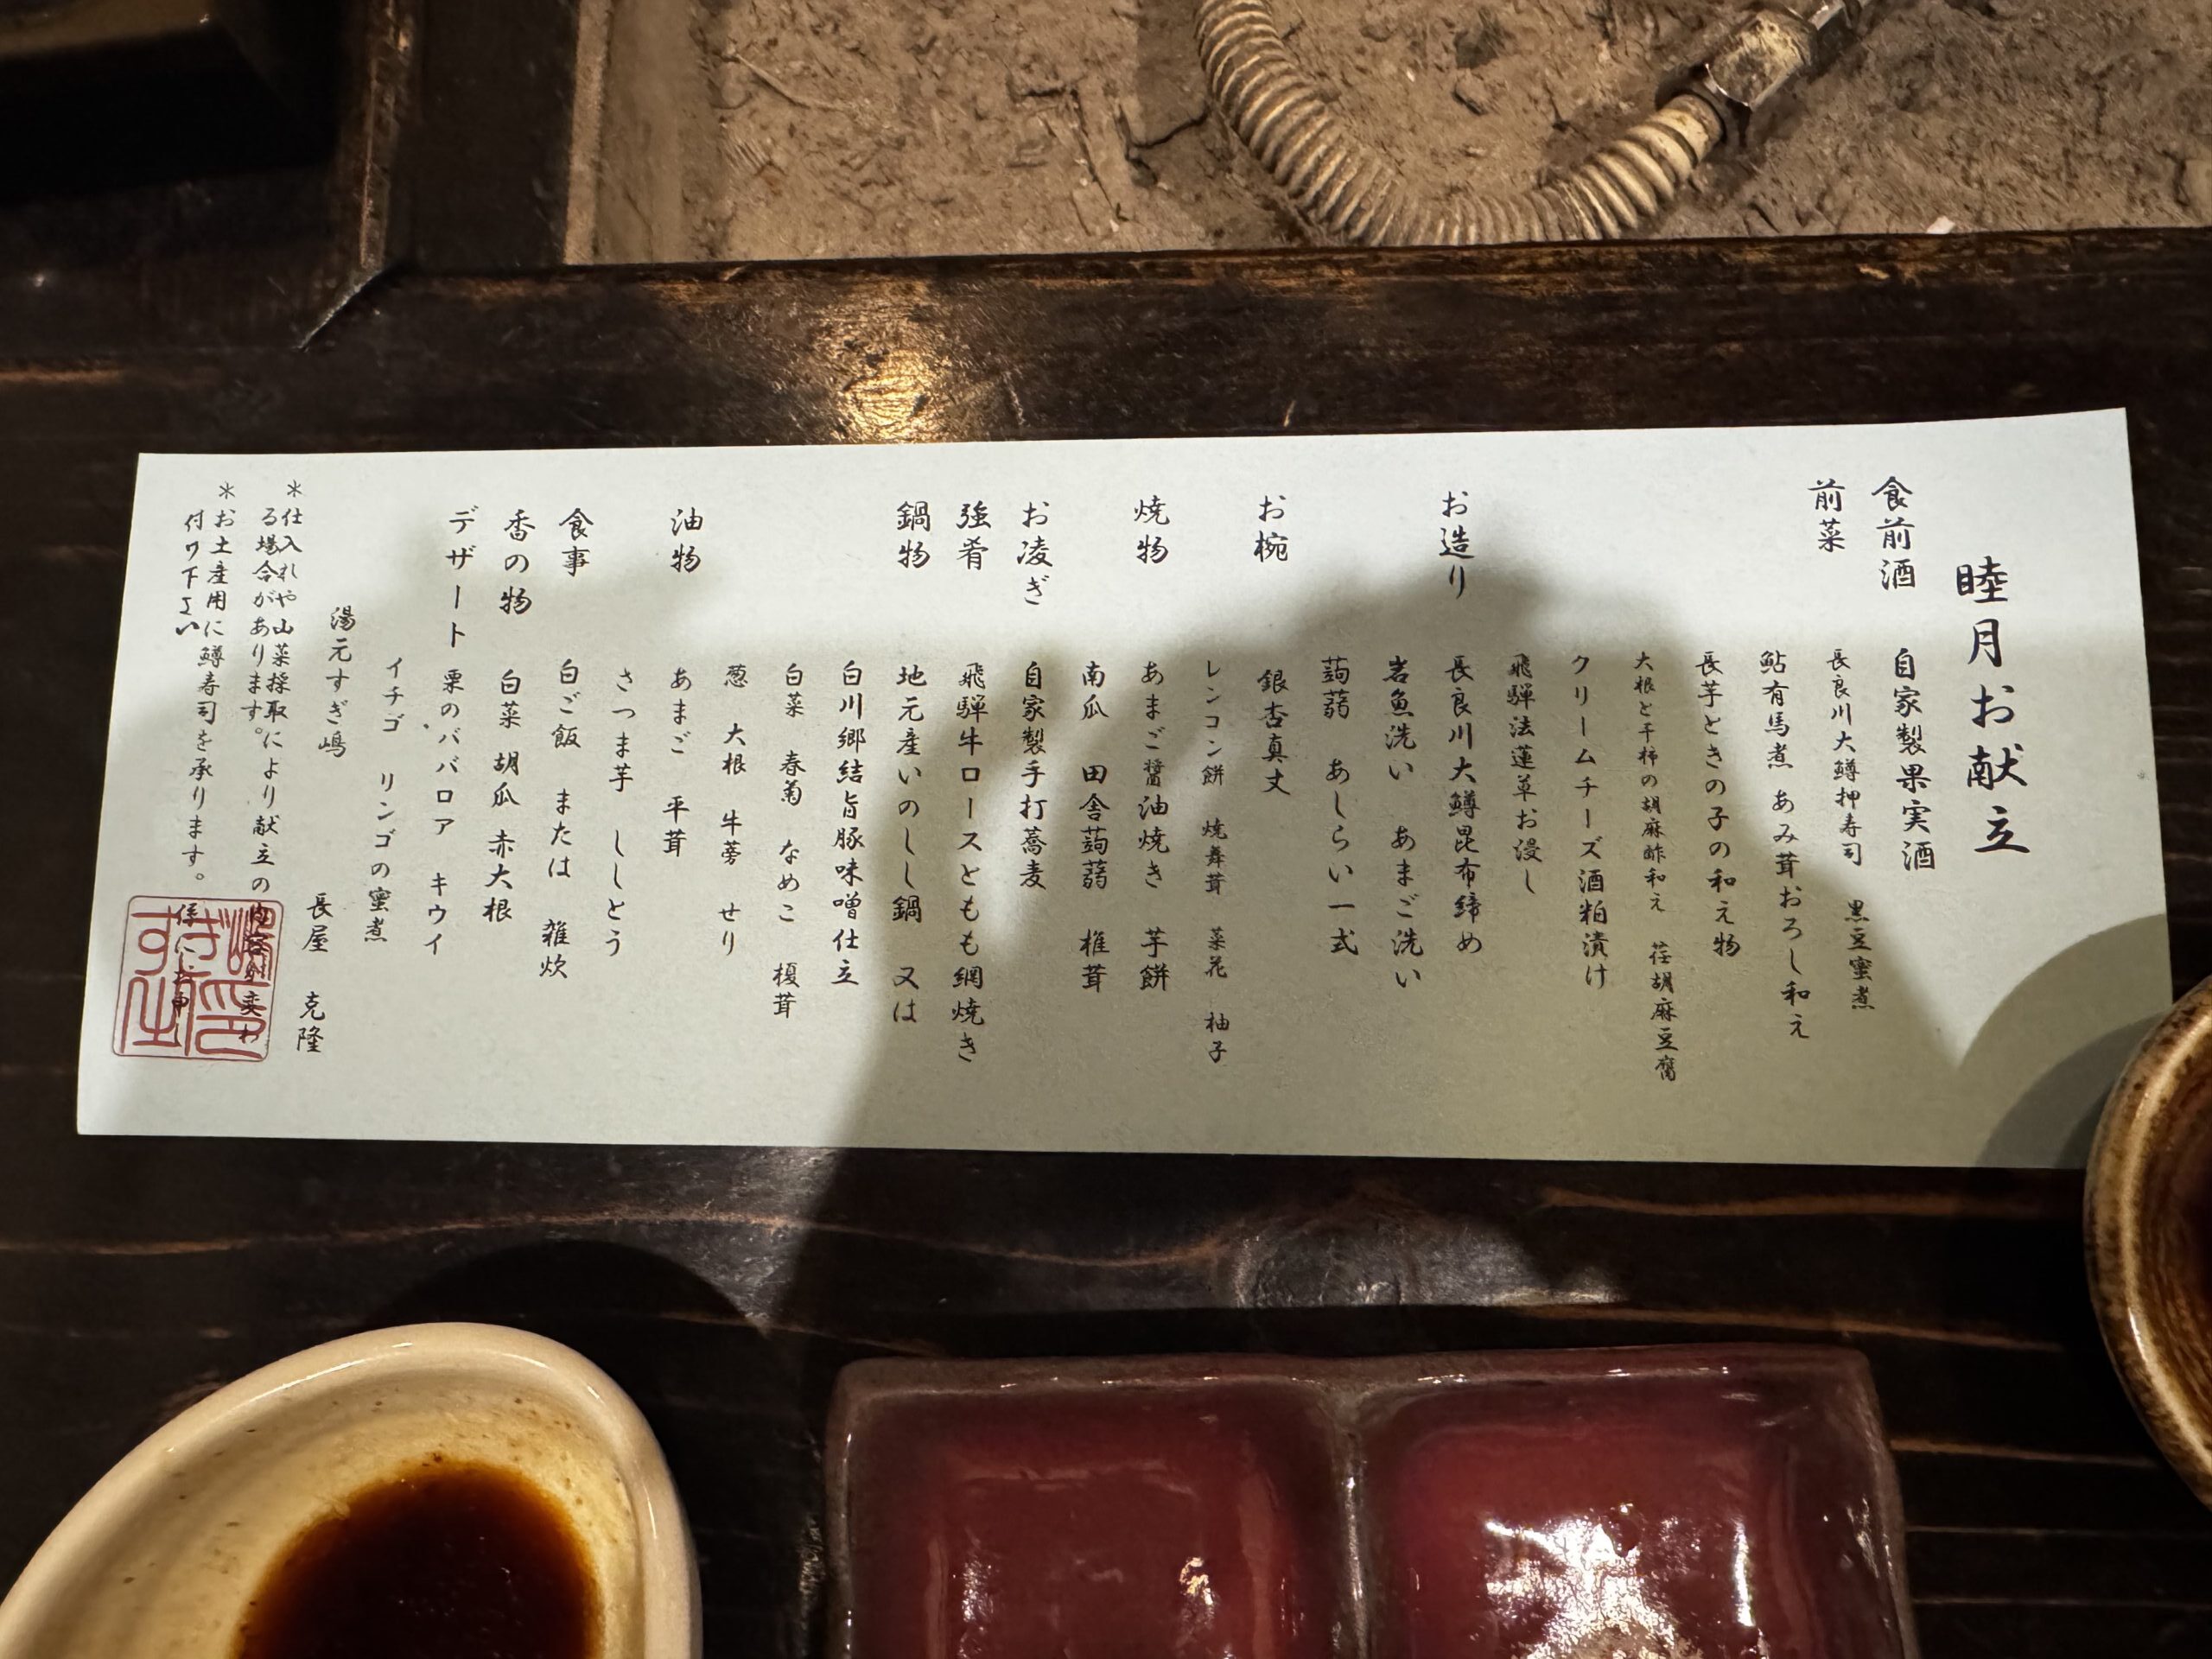 睦月お献立
食前酒　自家製果実酒
前菜　長良川大鱒押寿司　黒豆蜜煮
鮎有馬煮　あみ茸おろし和え
長芋ときの子の和え物
大根と干柿の胡麻酢和え　荏胡麻豆腐
クリームチーズ酒粕漬け
飛騨法蓮草お浸し
お造り　長良川大鱒昆布締め
岩魚洗い　あまご洗い
蒟蒻　あしらい一式
お椀　銀杏真丈
レンコン餅　焼舞茸　菜花　柚子
焼物　あまご醤油焼き　芋餅
南瓜　田舎蒟蒻　椎茸
お凌ぎ　自家製手打蕎麦
強肴　飛騨牛ロースともも網焼き
鍋物　地元産いのしし鍋　又は
白川郷結旨豚味噌仕立
白菜　春菊　なめこ　榎茸
葱　大根　牛蒡　せり
油物　あまご　平茸
さつま芋　ししとう
食事　白ご飯　または　雑炊
香の物　白菜　胡瓜　赤大根
デザート　栗のババロア　キウイ
イチゴ　リンゴの蜜煮
湯元すぎ嶋　長屋　克隆
＊仕入れや山菜採取により献立の内容が変わ
る場合があります。
＊お土産用に鱒寿司を承ります。係にお申し
付け下さい